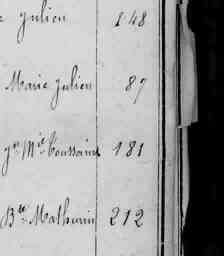 e Julien 148
Marie Julien 87
Jn Mie Toussaint 181
Bte Mathurin 212